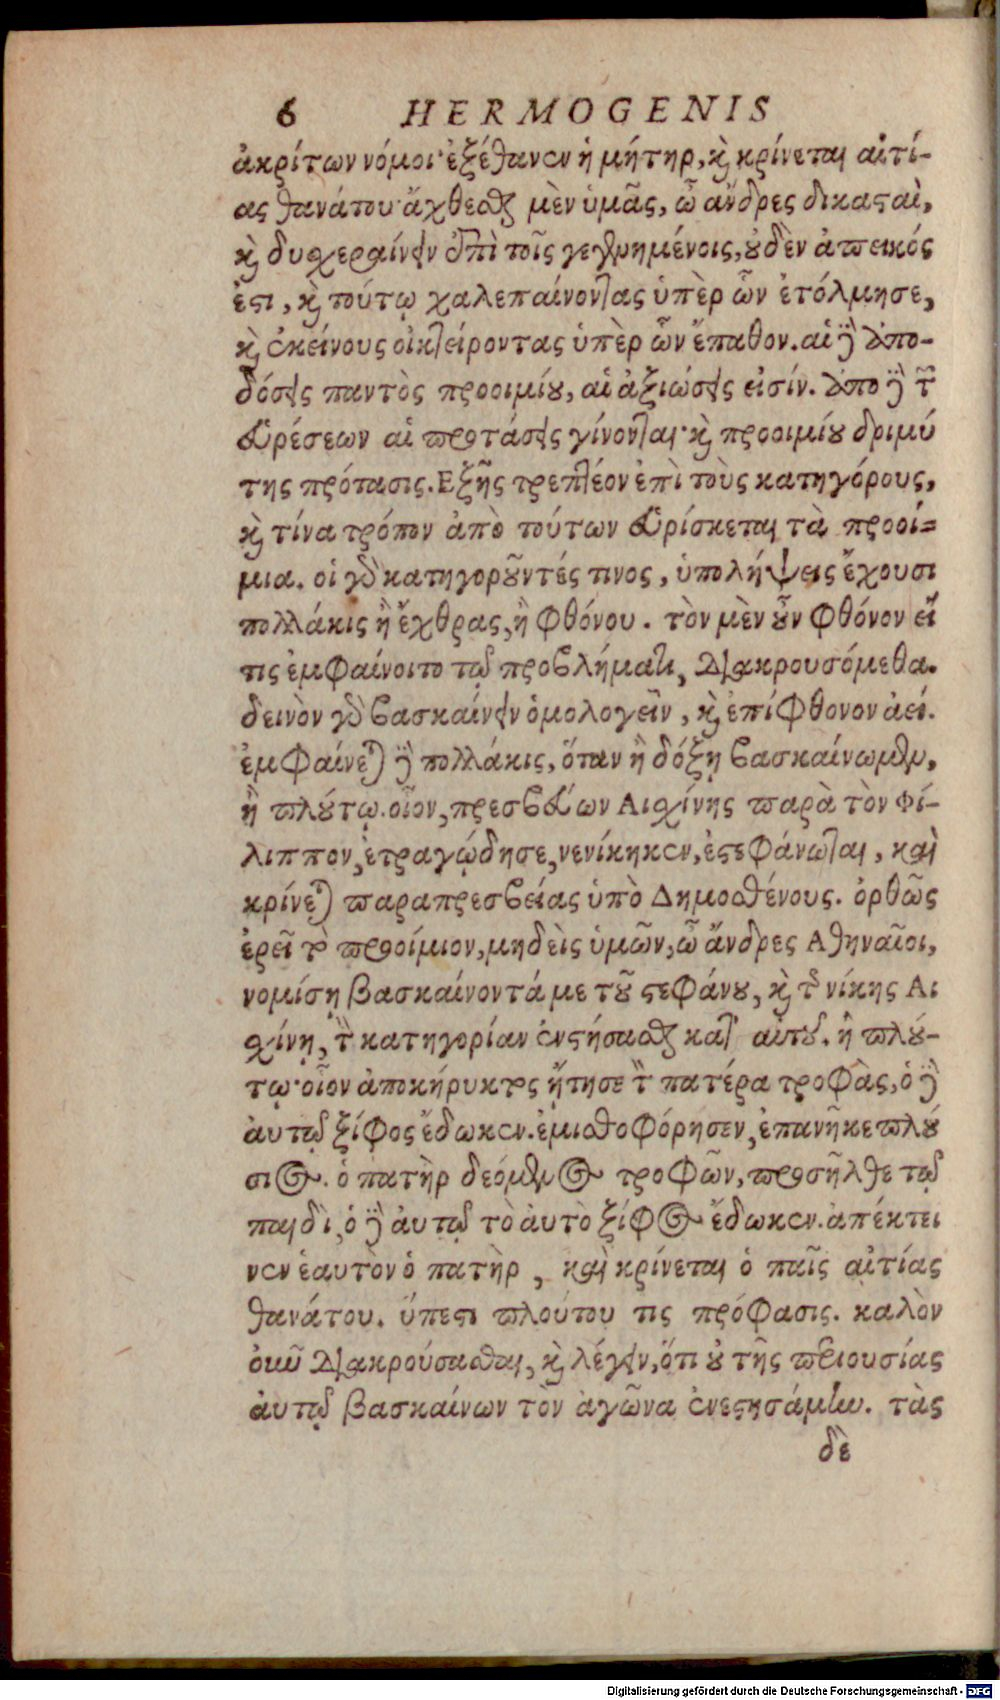 6 HERMOGENIS
ἀκρίτων νόμοι· ἐξέθανεν ἡ μήτηρ, καὶ κρίνεται αἰτί-
ας θανάτου· ἄχθεσθαι μὲν ὑμᾶς, ὦ ἄνδρες δικασταὶ,
καὶ δυσχεραίνειν ἐπὶ τοῖς γεγενημένοις, οὐδὲν ἀπεικός
ἐστι, καὶ τούτῳ χαλεπαίνοντας ὑπὲρ ὧν ἐτόλμησε,
καὶ ἐκείνους οἰκτείροντας ὑπὲρ ὧν ἔπαθον. αἱ δὲ ἀπο-
δόσεις παντὸς προοιμίου, αἱ ἀξιώσεις εἰσίν. ἀπὸ δὲ τῶν
εὑρέσεων αἱ προτάσεις γίνονται· καὶ προοιμίου δριμύ
της πρότασις. Εξῆς τρεπτέον ἐπὶ τοὺς κατηγόρους,
καὶ τίνα τρόπον ἀπὸ τούτων εὑρίσκεται τὰ προοί-
μια. οἱ γὰρ κατηγοροῦντές τινος, ὑπολήψεις ἔχουσι
πολλάκις ἢ ἔχθρας, ἢ φθόνου. τὸν μὲν οὖν φθόνον εἴ
τις ἐμφαίνοιτο τῷ προβλήματι, διακρουσόμεθα.
δεινὸν γὰρ βασκαίνειν ὁμολογεῖν, καὶ ἐπίφθονον ἀεί.
ἐμφαίνεται δὲ πολλάκις, ὅταν ἢ δόξῃ βασκαίνωμεν,
ἢ πλούτῳ. οἷον, πρεσβεύων Αισχίνης παρὰ τὸν Φί-
λιππον, ἐτραγῴδησε, νενίκηκεν, ἐστεφάνωται, καὶ
κρίνεται παραπρεσβείας ὑπὸ Δημοσθένους. ὀρθῶς
ἐρεῖ τὸ προοίμιον, μηδεὶς ὑμῶν, ὦ ἄνδρες Αθηναῖοι,
νομίσῃ βασκαίνοντά με τοῦ στεφάνου, καὶ τῆς νίκης Αι
σχίνῃ, τὴν κατηγορίαν ἐνστήσασθαι κατ' αὐτοῦ. ἢ πλού-
τῳ· οἷον ἀποκήρυκτος ᾔτησε τὸν πατέρα τροφὰς, ὁ δὲ
ἀυτῷ ξίφος ἔδωκεν. ἐμισθοφόρησεν, ἐπανῆκε πλού
σιος. ὁ πατὴρ δεόμενος τροφῶν, προσῆλθε τῷ
παιδὶ, ὁ δὲ ἀυτῷ τὸ ἀυτὸ ξίφος ἔδωκεν. ἀπέκτει
νεν ἑαυτὸν ὁ πατὴρ, καὶ κρίνεται ὁ παῖς αἰτίας
θανάτου. ὕπεστι πλούτου τις πρόφασις. καλὸν
οὖν διακρούσασθαι, καὶ λέγειν, ὅτι οὐ τῆς περιουσίας
ἀυτῷ βασκαίνων τὸν ἀγῶνα ἐνεστησάμην. τὰς
δὲ
Digitalisierung gefördert durch die Deutsche Forschungsgemeinschaft - DFG